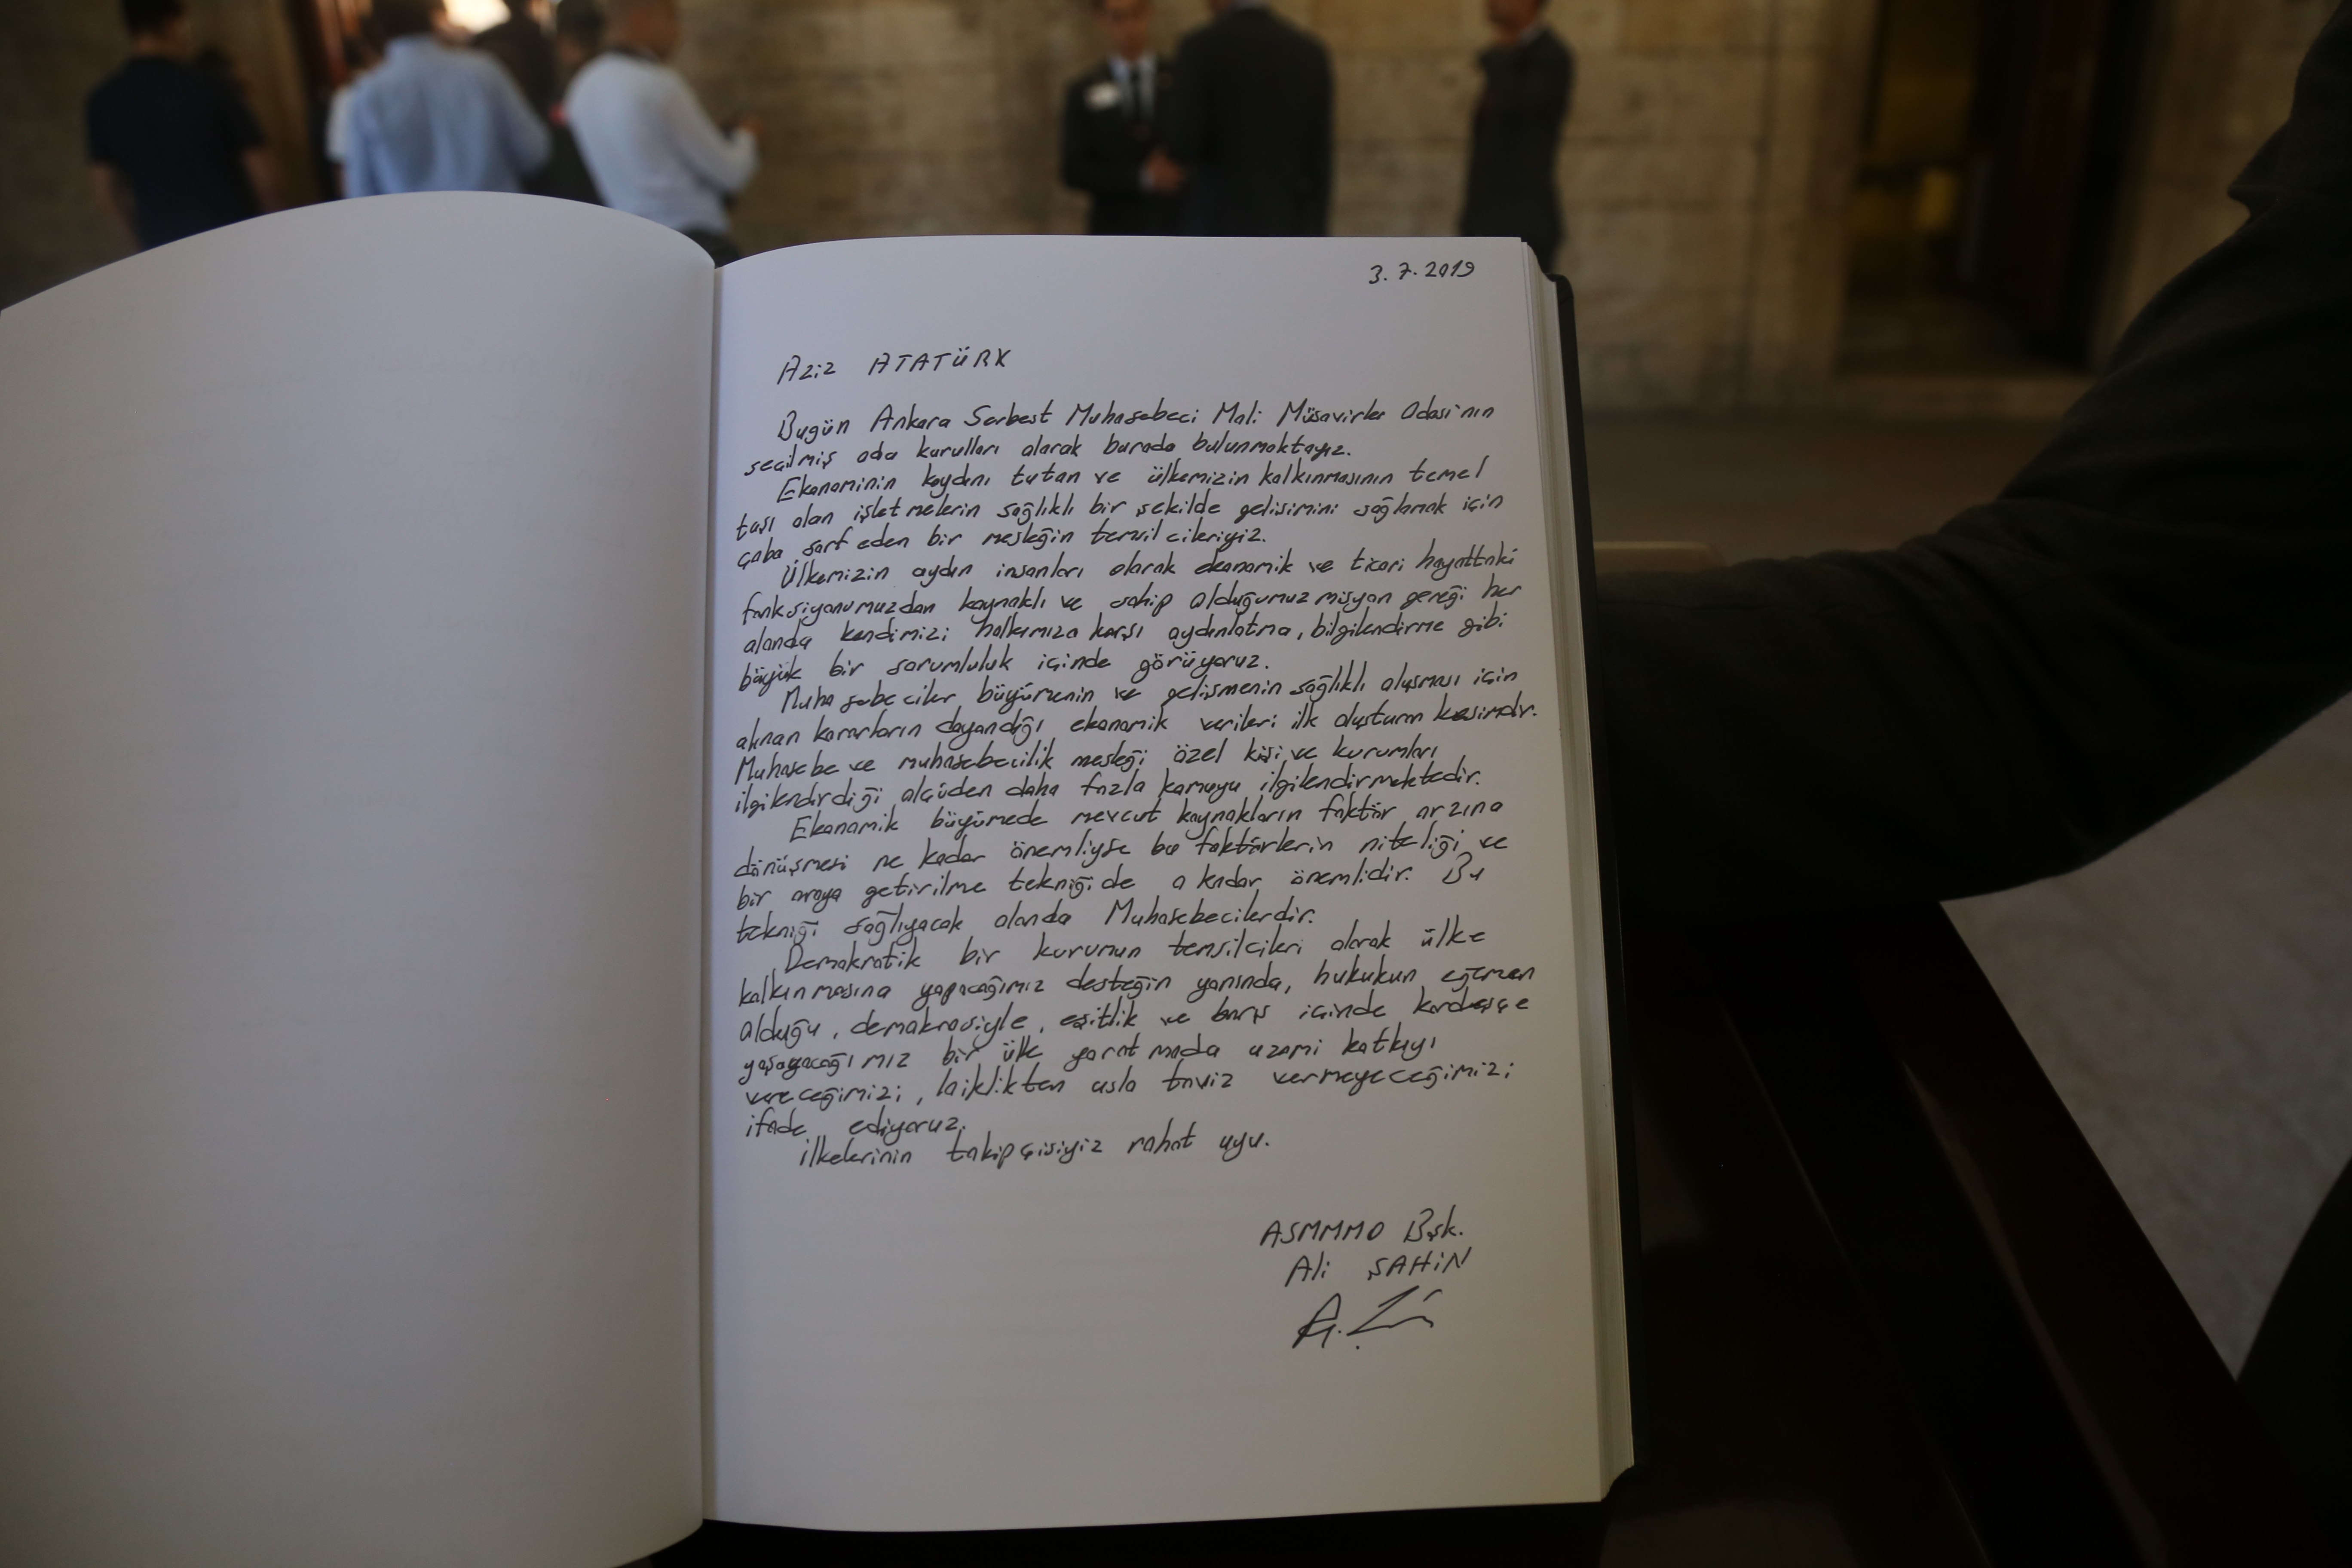 3.7.2019
Aziz ATATÜRK
Bugün Ankara Serbest Muhasebeci Mali Müşavirler Odası'nın
seçilmiş oda kurulları olarak burada bulunmaktayız.
Ekonominin kaydını tutan ve ülkemizin kalkınmasının temel
taşı olan işletmelerin sağlıklı bir şekilde gelişimini sağlamak için
çaba sarf eden bir mesleğin temsilcileriyiz.
Ülkemizin aydın insanları olarak ekonomik ve ticari hayattaki
fonksiyonumuzdan kaynaklı ve sahip olduğumuz misyon gereği her
alanda kendimizi halkımıza karşı aydınlatma, bilgilendirme gibi
büyük bir sorumluluk içinde görüyoruz.
Muhasebeciler büyümenin ve gelişmenin sağlıklı oluşması için
alınan kararların dayandığı ekonomik verileri ilk oluşturan kesimdir.
Muhasebe ve muhasebecilik mesleği özel kişi ve kurumları
ilgilendirdiği ölçüden daha fazla kamuyu ilgilendirmektedir.
Ekonomik büyümede mevcut kaynakların faktör arzına
dönüşmesi ne kadar önemliyse bu faktörlerin niteliği ve
bir araya getirilme tekniği de o kadar önemlidir. Bu
tekniği sağlayacak olanda Muhasebecilerdir.
Demokratik bir kurumun temsilcileri olarak ülke
kalkınmasına yapacağımız desteğin yanında, hukukun egemen
olduğu, demokrasiyle, eşitlik ve barış içinde kardeşçe
yaşayacağımız bir ülke yaratmada azami katkıyı
vereceğimizi, laiklikten asla taviz vermeyeceğimizi
ifade ediyoruz.
İlkelerinin takipçisiyiz rahat uyu.
ASMMMO Bşk.
Ali ŞAHİN